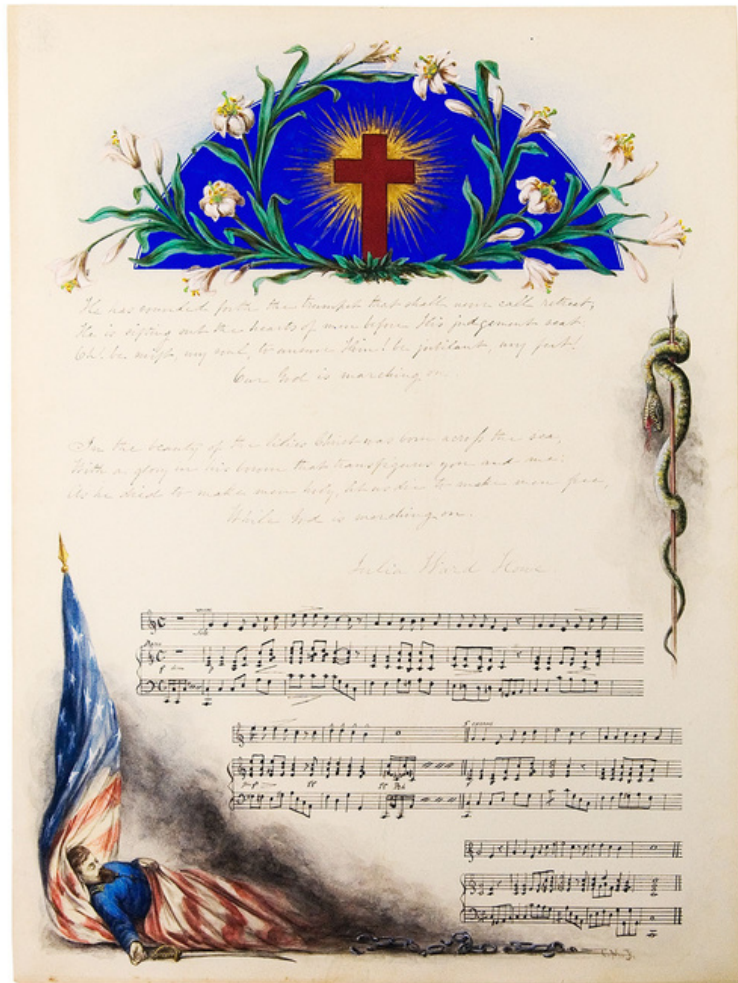 He has sounded forth the trumpet that shall never call retreat,
He is sifting out the hearts of men before His judgement seat.
Oh! be swift, my soul, to answer Him! be jubilant, my feet!
Our God is marching on.
In the beauty of the lilies Christ was born across the sea,
With a glory in his bosom that transfigures you and me:
As he died to make men holy, let us die to make men free,
While God is marching on.
Julia Ward Howe